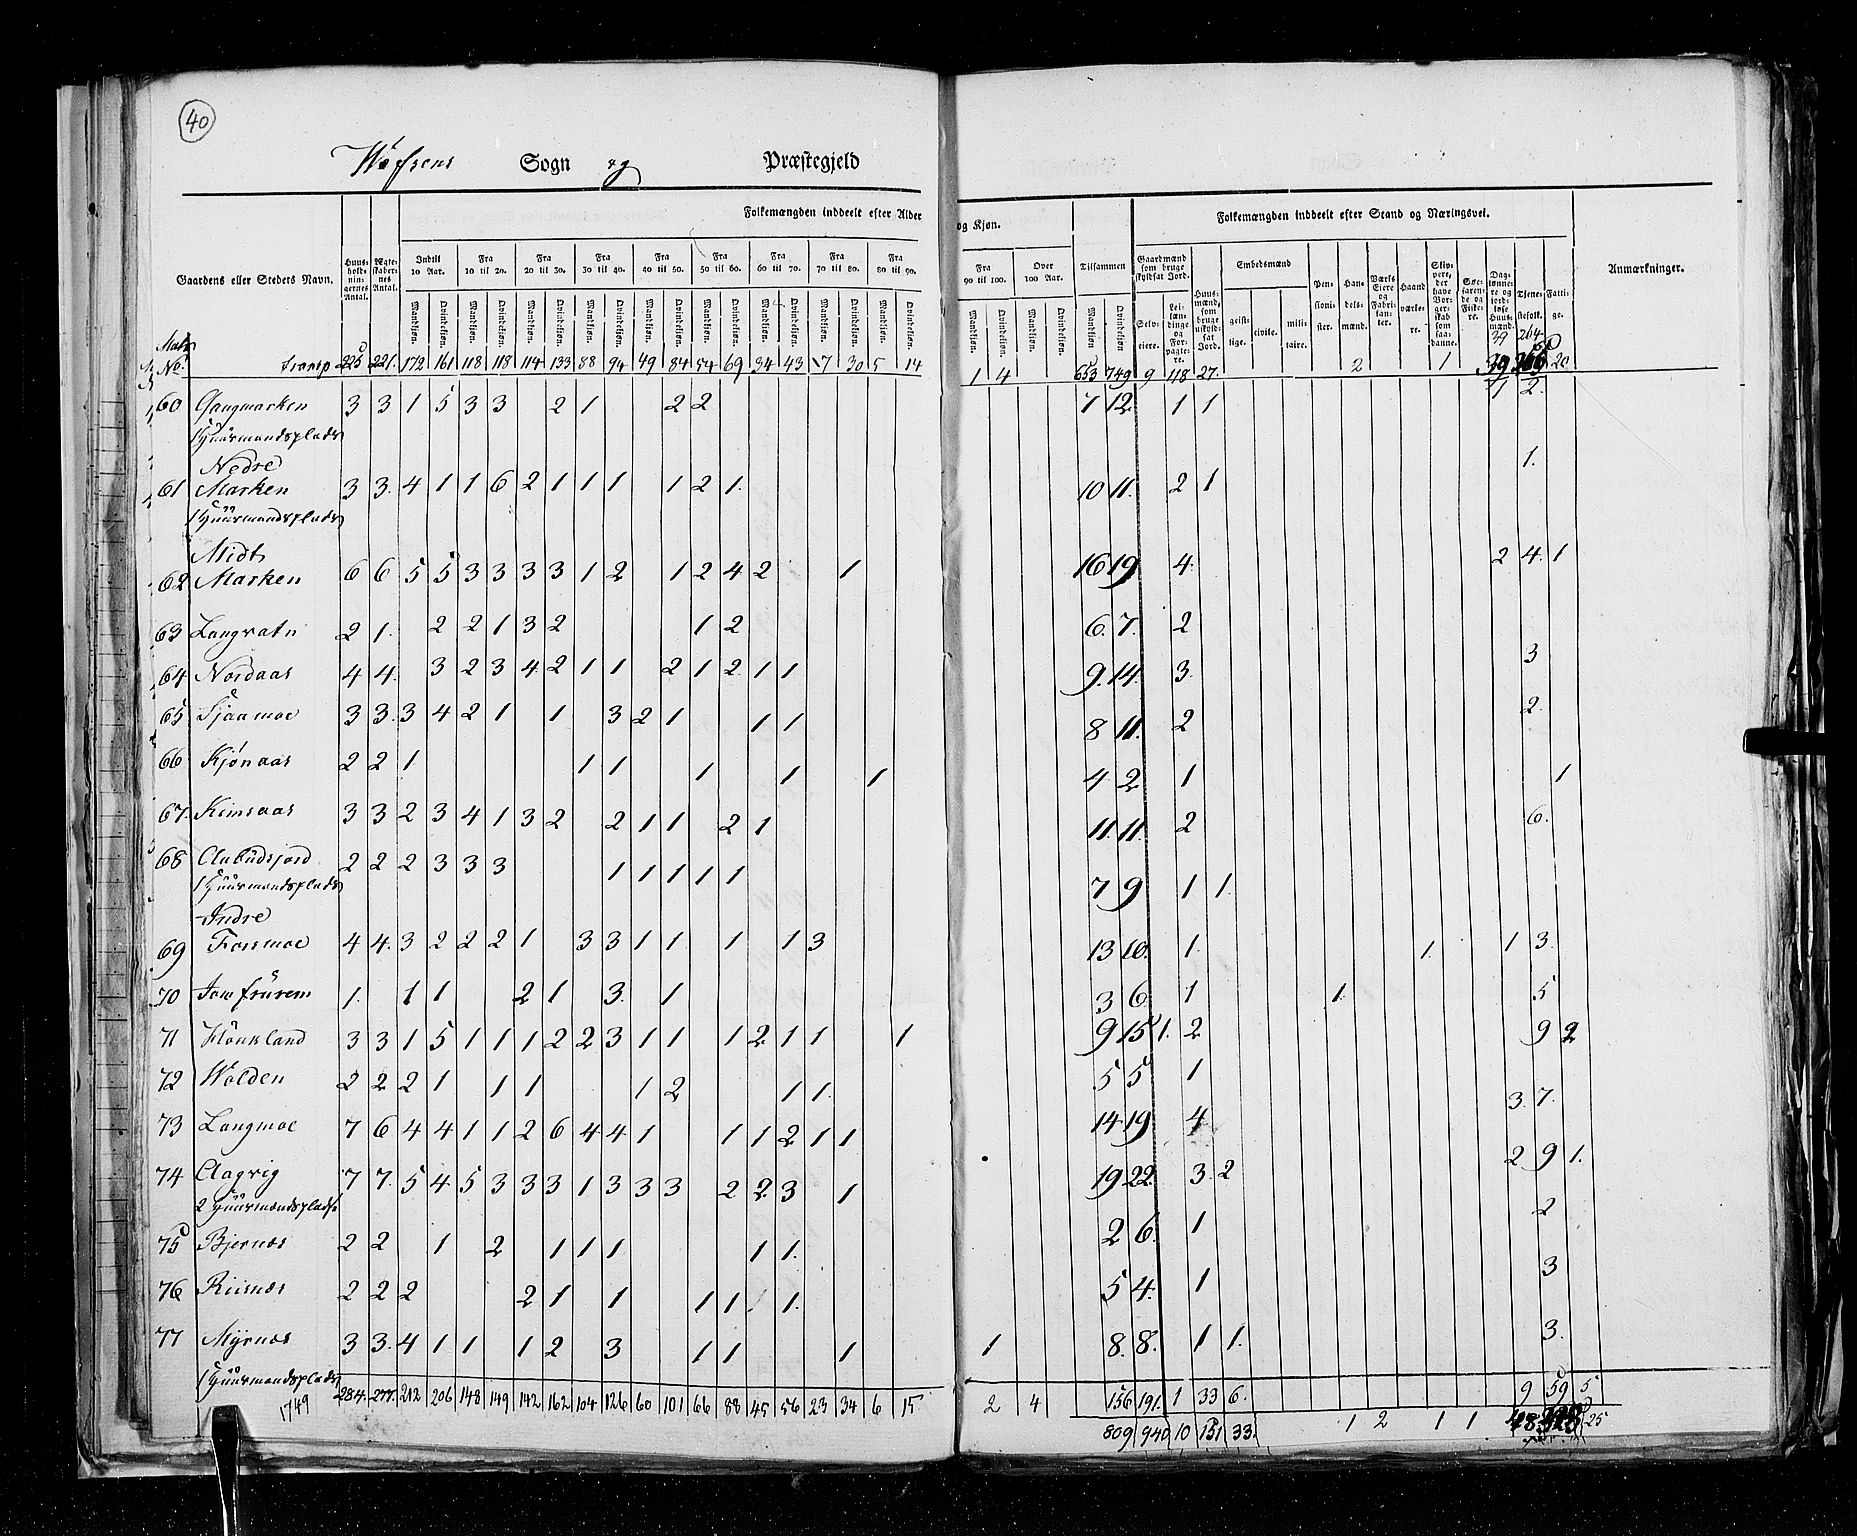 40
Wefsens Sogn og Præstegjeld
Folkemængden inddeelt efter Alder og Kjøn. Tilsammen Folkemængden inddeelt efter Stand og Næringsvei. Anmærkninger.
Gaardens eller Steders Navn. Huusholdningernes Antal. Ægteskabernes Antal. Indtil 10 Aar. Fra 10 til 20. Fra 20 til 30. Fra 30 til 40. Fra 40 til 50. Fra 50 til 60. Fra 60 til 70. Fra 70 til 80. Fra 80 til 90. Fra 90 til 100. Over 100 Aar.
Mandkjøn. Qvindekjøn.
Gaardmænd som bruge skyldsat Jord. Selveiere. Leilændinge og Forpagtere. Huusmænd, som bruge uskyldsat Jord. Embedsmænd geistlige. civile. militaire. Pensionister. Handelsmænd. Værks Eiere og Fabrikanter. Haandværkere. Søefarende og Fiskere. Daglønnere og jordløse Huusmænd. Tjenestefolk. Fattige.
39 264
Matr No. Transp 225 221 172 161 118 118 114 133 88 94 49 84 54 69 34 43 7 30 5 14 1 4 653 749 9 118 27 2 1 39 20
60 Gangmarken 3 3 1 5 3 3 2 1 2 2 7 12 1 1 1 2.
1 Huusmandsplads
Nedre
61 Marken 3 3. 4 1 1 6 2 1 1 1 1 2 1. 10 11. 2 1 1.
1 Huusmandsplads
Midt
62 Marken 6 6 5 5 3 3 3 3 1 2 1 2 4 2 1 16 19 4. 2 4. 1
63 Langvatn 2 1. 2 2 1 3 2 1 2 6. 7. 2
64 Nordaas 4 4. 3 2 3 4 2 1 1 2 1 2 1 1 9. 14. 3. 3
65 Sjaamoe 3 3. 3 4 2 1 1 3 2 1 1 1 8 11. 2 2.
66 Kjønaas 2 2 1 1 1 1 1 1 4 2 1 1
67. Kimsaas 3 3 2 3 4 1 3 2 2 1 1 2 1 11. 11. 2 6.
68 2 2 2 3 3 3 1 1 1 1 1 7 9 1 1.
1 Huusmandsplads
Indre
69 Forsmoe 4 4. 3 2 2 2 1 3 3 1 1 1 1 3 13 10. 1. 1. 1 3.
70 Jomfrurem 1. 1 1 2 1 3. 1 3 6. 1 1. 5
71 3 3 1 5 1 1 1 2 2 3 1 1 1 2 1 1 1 9 15 1. 2 9 2
72 Wolden 2 2 2 1 1 1 1 2 1 1. 5 5 1
73 Langmoe 7 6 4 4 1 1 2 6 4 4 1 1 1 2 1 1 14 19. 4 3. 7.
74 7 7. 5 4 5 3 3 3 1 3 3 3 2 2 3 1 19 22. 3. 2 2 9 1.
2 Huusmandsplads
75 Bjernæs 2 2 1 2 1 1 1 1 1. 2 6. 1 2
76 Riisnæs 2 2 2 2 1 1 1 1 1. 5 4. 1 3
77 Myrnæs 3 3. 4 1 1 1 2 3 1 1 1 1 8. 8. 1 1. 3.
1 Huusmandsplads
284. 277. 212 206 148 149 142 162 104 126 60 101 66 88 45 56 23 34 6 15 2 4 156 191. 1 33 6. 9 59 5
1749 809 940 10 151 33. 1 2 1 1 48 328 25